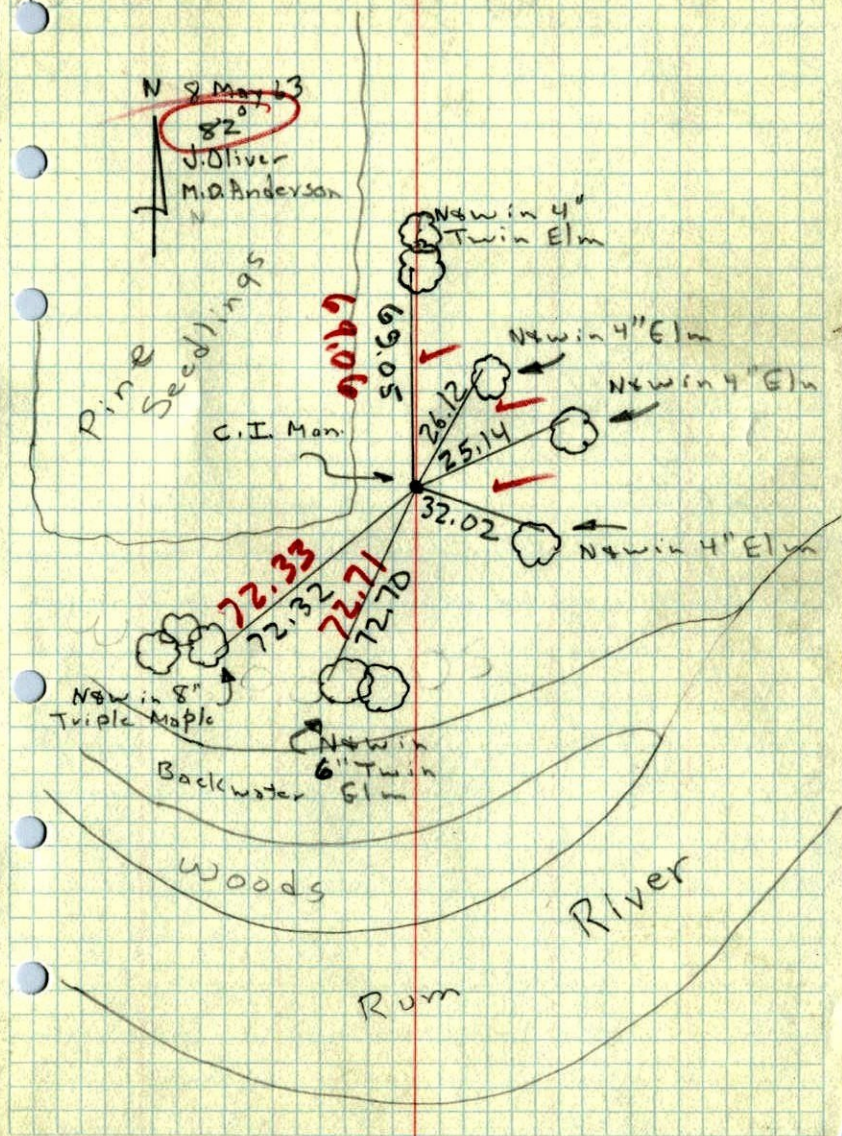 N 8 May 63
82°
J. Oliver
M.D. Anderson
N
N&W in 4"
Twin Elm
Pine
Seedlings
69.06
69.05
N&W in 4" Elm
26.12
N&W in 4" Elm
25.14
C.I. Mon.
32.02
N&W in 4" Elm
72.33
72.32
72.71
72.70
N&W in 8"
Triple Maple
N&W in
6" Twin
Elm
Backwater
Woods
River
Rum